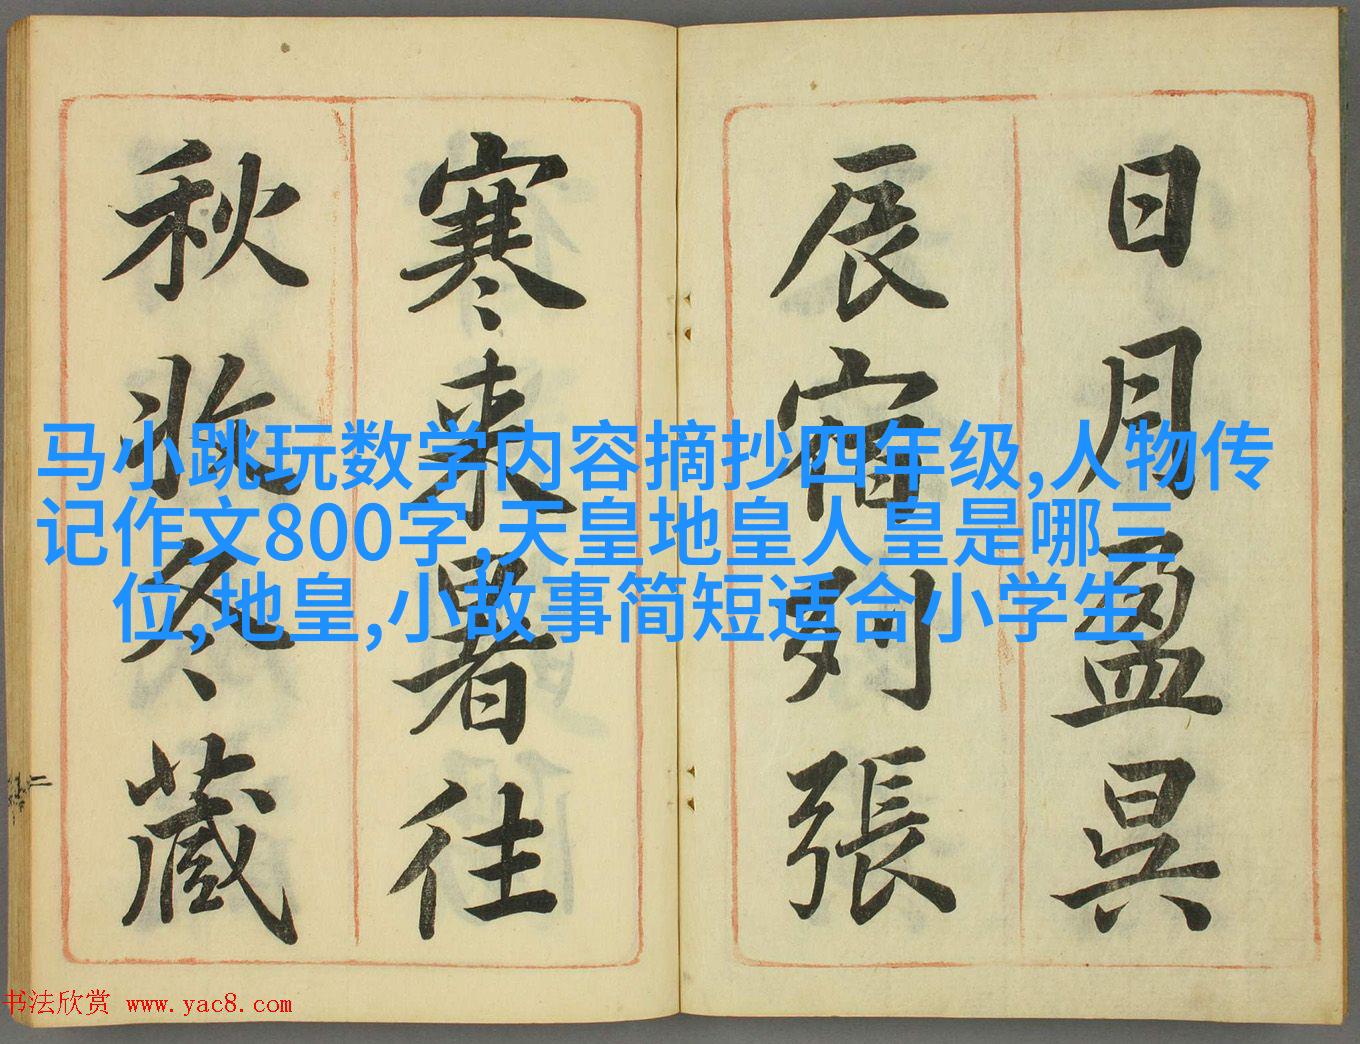 日月盈昃
辰宿列張
寒来暑往
秋收冬藏
马小跳玩数学内容摘抄四年级,人物传
记作文800字,天皇地皇人皇是哪三
位,地皇,小故事简短适合小学生
书法欣赏 www.yac8.com